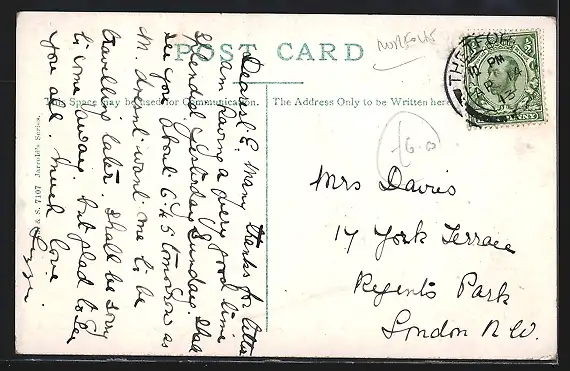 POST CARD
Norfolk
This Space may be used for Communication.
The Address Only to be Written here
& S. 7107 Jarrold's Series.
THETFORD
12 PM
14
£6.00
Dearest E. Many thanks for letter
am having a very good time
Splendid Saturday & Sunday. Shall
see you about 6.45 tomorrow as
M. doesn't want me to be
travelling later. Shall be sorry
to come away, but glad to see
you all. Much love
Mrs Davis
17 York Terrace
Regents Park
London N.W.